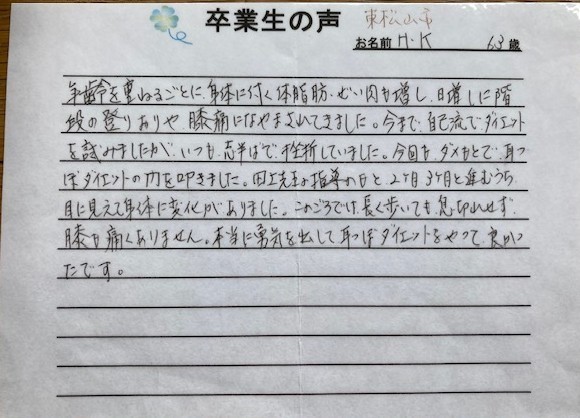 卒業生の声
東松山市
お名前 H・K 63歳
年齢を重ねるごとに、身体に付く体脂肪、ぜい肉も増し、日増しに階
段の登りおりや、膝痛になやまされてきました。今まで、自己流でダイエット
を試みましたが、いつも、志半ばで、挫折していました。今回も、ダメもとで、耳つ
ぼダイエットの門を叩きました。田上先生の指導のもと、2ヶ月3ヶ月と進むうち、
目に見えて身体に変化がありました。このごろでは、長く歩いても、息切れせず、
膝も痛くありません。本当に勇気を出して耳つぼダイエットをやって、良かっ
たです。